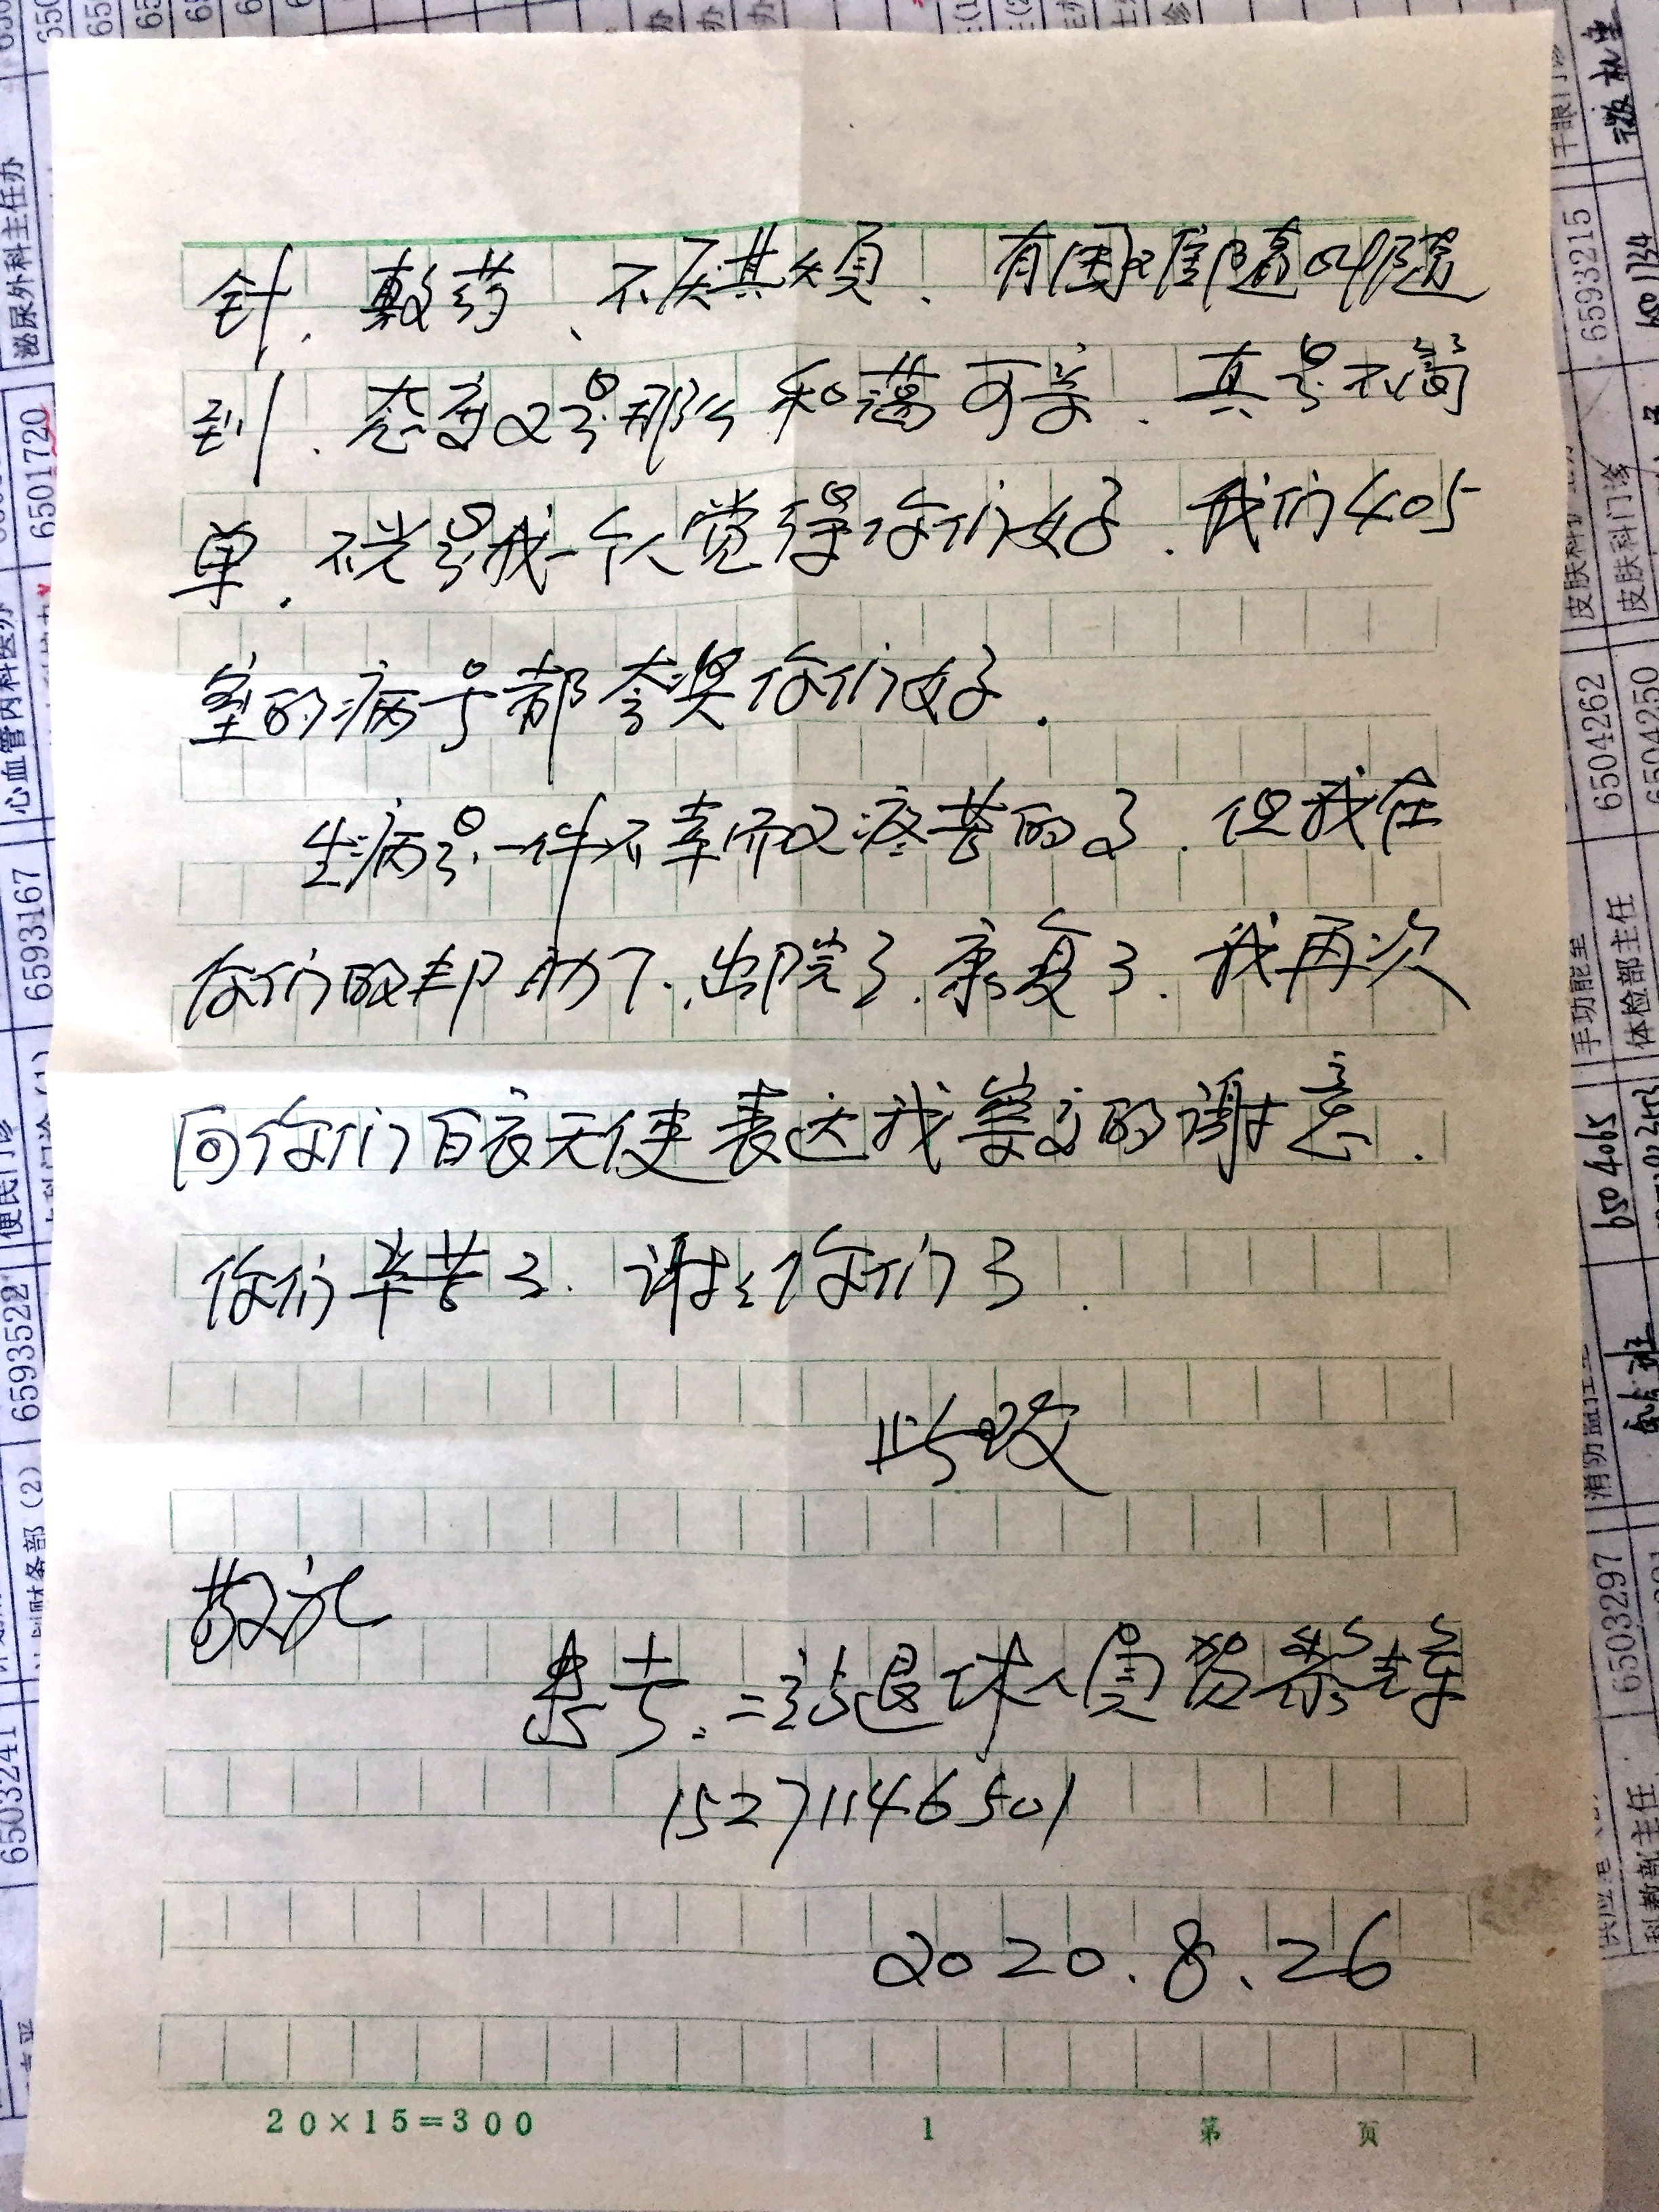 针、敷药、不厌其烦、有困难随叫随
到、态度又是那么和蔼可亲、真是不简
单. 不光是我一个人觉得你们好、我们405
室的病号都夸奖你们好.
生病是一件不幸而又疼苦的了、但我在
你们的帮助下、出院了、康复了、我再次
向你们白衣天使表达我等方的谢意.
你们辛苦了. 谢谢你们了.
此致
敬礼
患者. 二站退休人员贺
15271146501
2020.8.26
20×15=300 1 第 页
泌尿外科主任办
6501720
心血管内科医办
6593167
便民门诊
6593522
财务部(2)
6503241
6593215
6501134
皮肤科门诊
6504262
6504250
体检部主任
650 4065
6503297
科教部主任